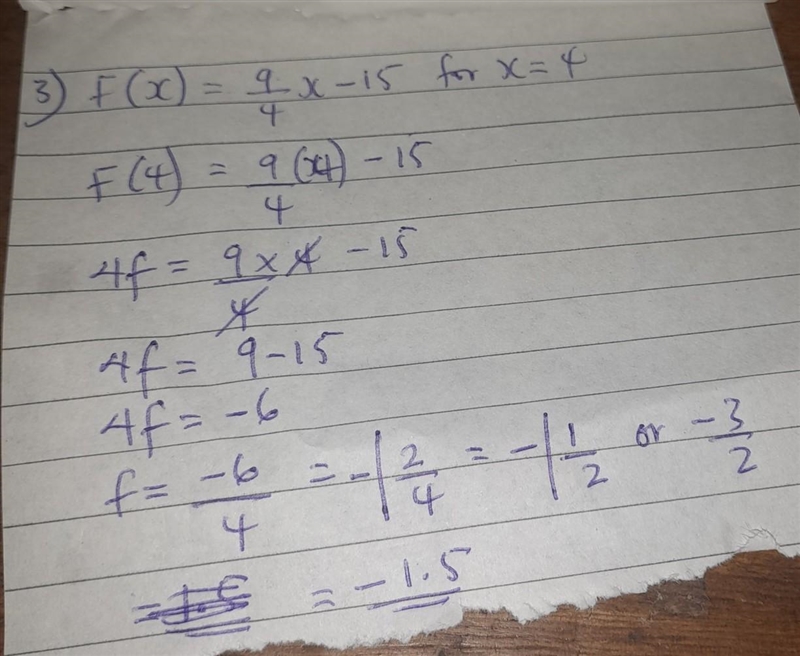 3) F(x) = 9/4 x - 15 for x = 4
F(4) = 9(x4)/4 - 15
4f = 9 x 4/4 - 15
4f = 9 - 15
4f = -6
f = -6/4 = -1 2/4 = -1 1/2 or -3/2
= -1.5